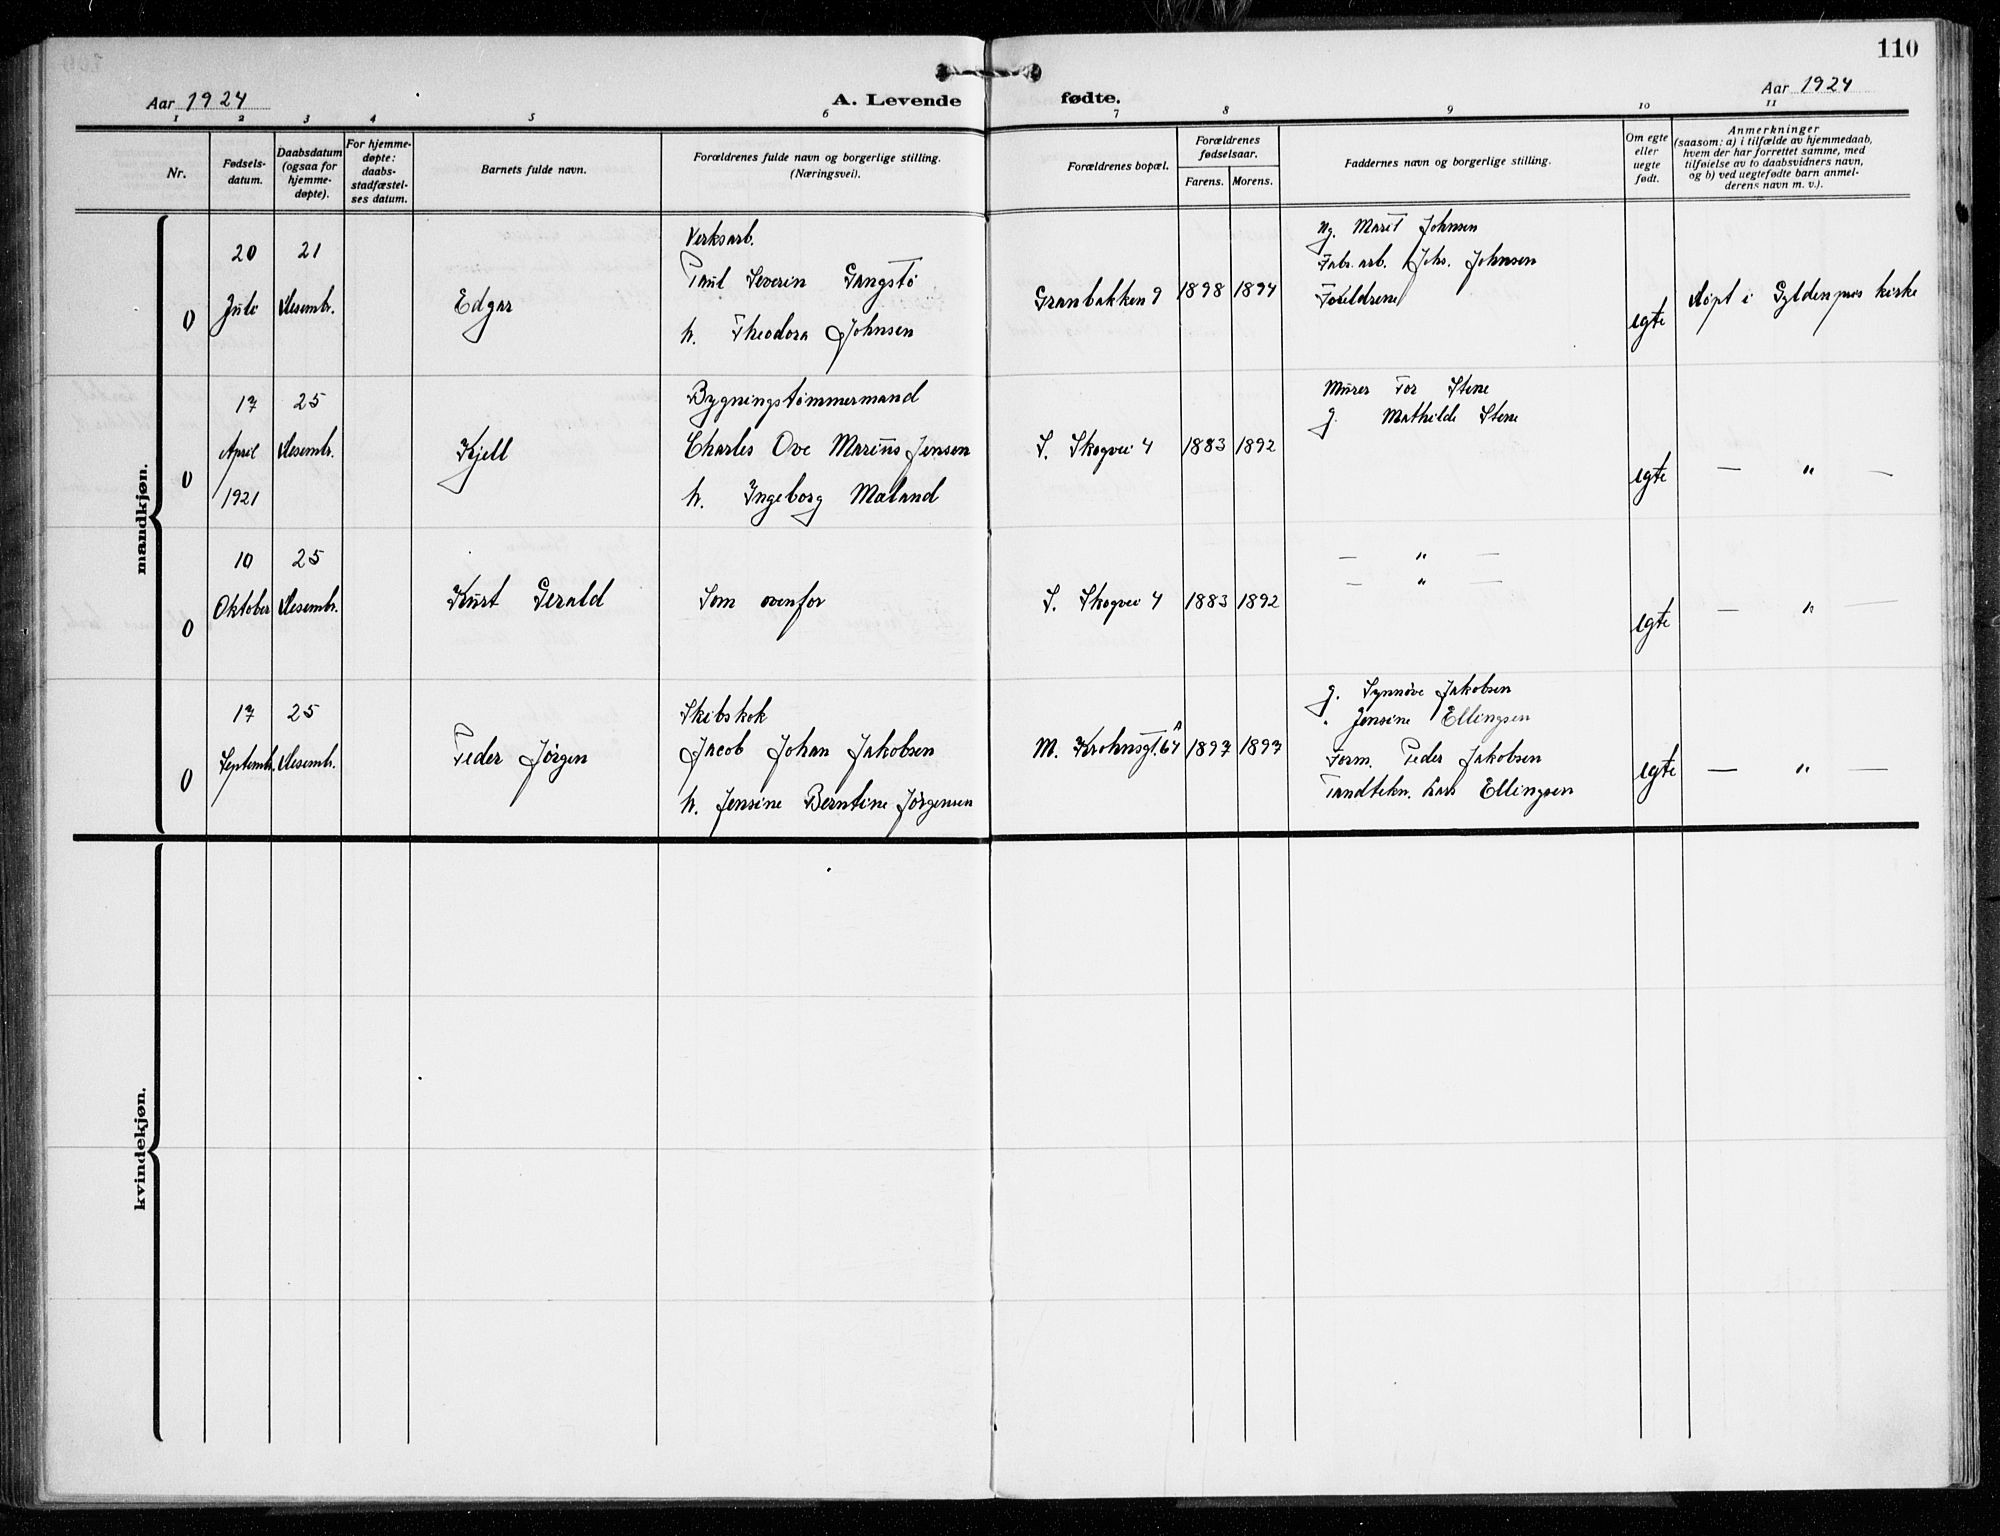 110
Aar 1924
A. Levende fødte.
Aar 1924
1 2 3 4 5 6 7 8 9 10 11
Nr.
Fødsels-
datum.
Daabsdatum
(ogsaa for
hjemme-
døpte).
For hjemme-
døpte:
daabs-
stadfæstel-
ses datum.
Barnets fulde navn.
Forældrenes fulde navn og borgerlige stilling.
(Næringsvei).
Forældrenes bopæl.
Forældrenes
fødselsaar.
Farens. Morens.
Faddernes navn og borgerlige stilling.
Om egte
eller
uegte
født.
Anmerkninger
(saasom: a) i tilfælde av hjemmedaab,
hvem der har forrettet samme, med
tilføielse av to daabsvidners navn,
og b) ved uegtefødte barn anmel-
derens navn m. v.).
mandkjøn.
0
20
Juli
21
Desembr.
Edgar
Verksarb.
Paul Severin Gangstø
h. Theodora Johnsen
Granbakken 9
1898
1894
Ug. Marit Johnsen
Fabr. arb. Johs. Johnsen
Foreldrene
egte
Døpt i Gyldenpris kirke
0
17
April
1921
25
Desembr.
Kjell
Bygningstømmermand
Charles Ove Marius Jensen
h. Ingeborg Mæland
S. Skogvei 4
1883
1892
Murer Tor Stene
g. Mathilde Stene
egte
— " —
0
10
Oktober
25
Desembr.
Kurt Gerald
Som ovenfor
S. Skogvei 4
1883
1892
— " —
— " —
egte
— " —
0
17
Septembr.
25
Desembr.
Peder Jørgen
Skibskok
Jacob Johan Jakobsen
h. Jensine Berntine Jørgensen
M. Krohnsgt. 64 A
1897
1897
g. Synnøve Jakobsen
" Jensine Ellingsen
Form. Peder Jakobsen
Tandtekn. Lars Ellingsen
egte
— " —
kvindekjøn.